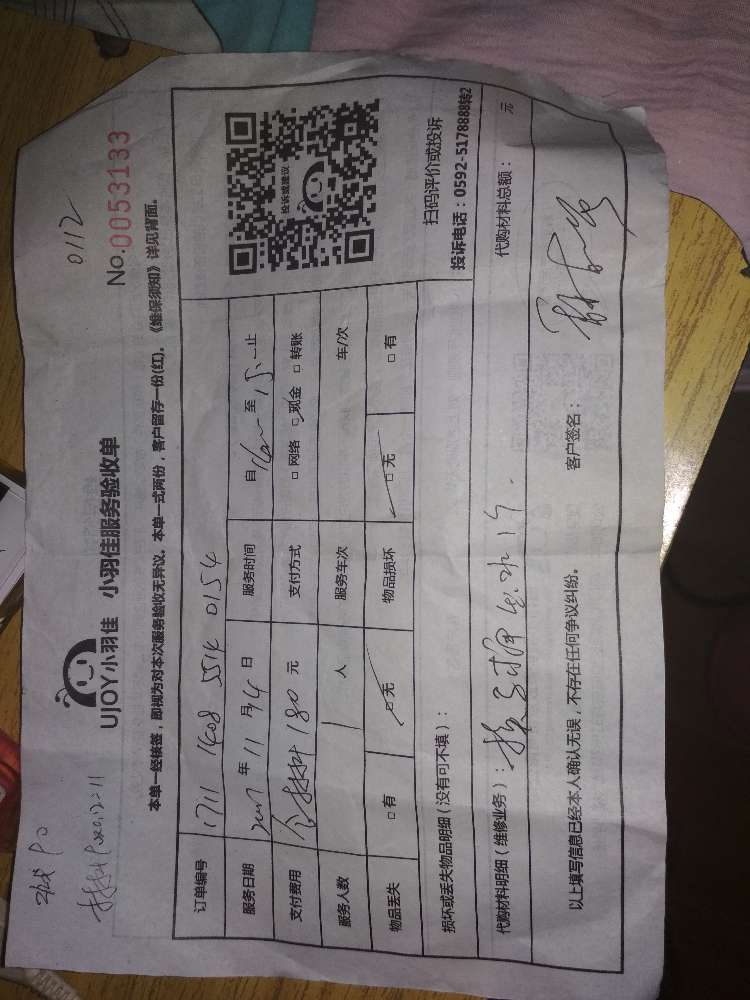 0112
UJOY小羽佳 小羽佳服务验收单
No.0053133
本单一经核签，即视为对本次服务验收无异议。本单一式两份，客户留存一份(红)。《维保须知》详见背面。
订单编号 1711 1408 5514 0154
服务日期 2017 年 11 月 14 日 服务时间 自 至 15:-止
支付费用 180 元 支付方式 □ 网络 □ 现金 □ 转账
服务人数 1 人 服务车次 车/次
物品丢失 □ 有 □ 无 物品损坏 □ 无 □ 有
投诉或建议
扫码评价或投诉
投诉电话：0592-5178888转2
损坏或丢失物品明细（没有可不填）：
代购材料明细（维修业务）： 代购材料总额： 元
以上填写信息已经本人确认无误，不存在任何争议纠纷。 客户签名：